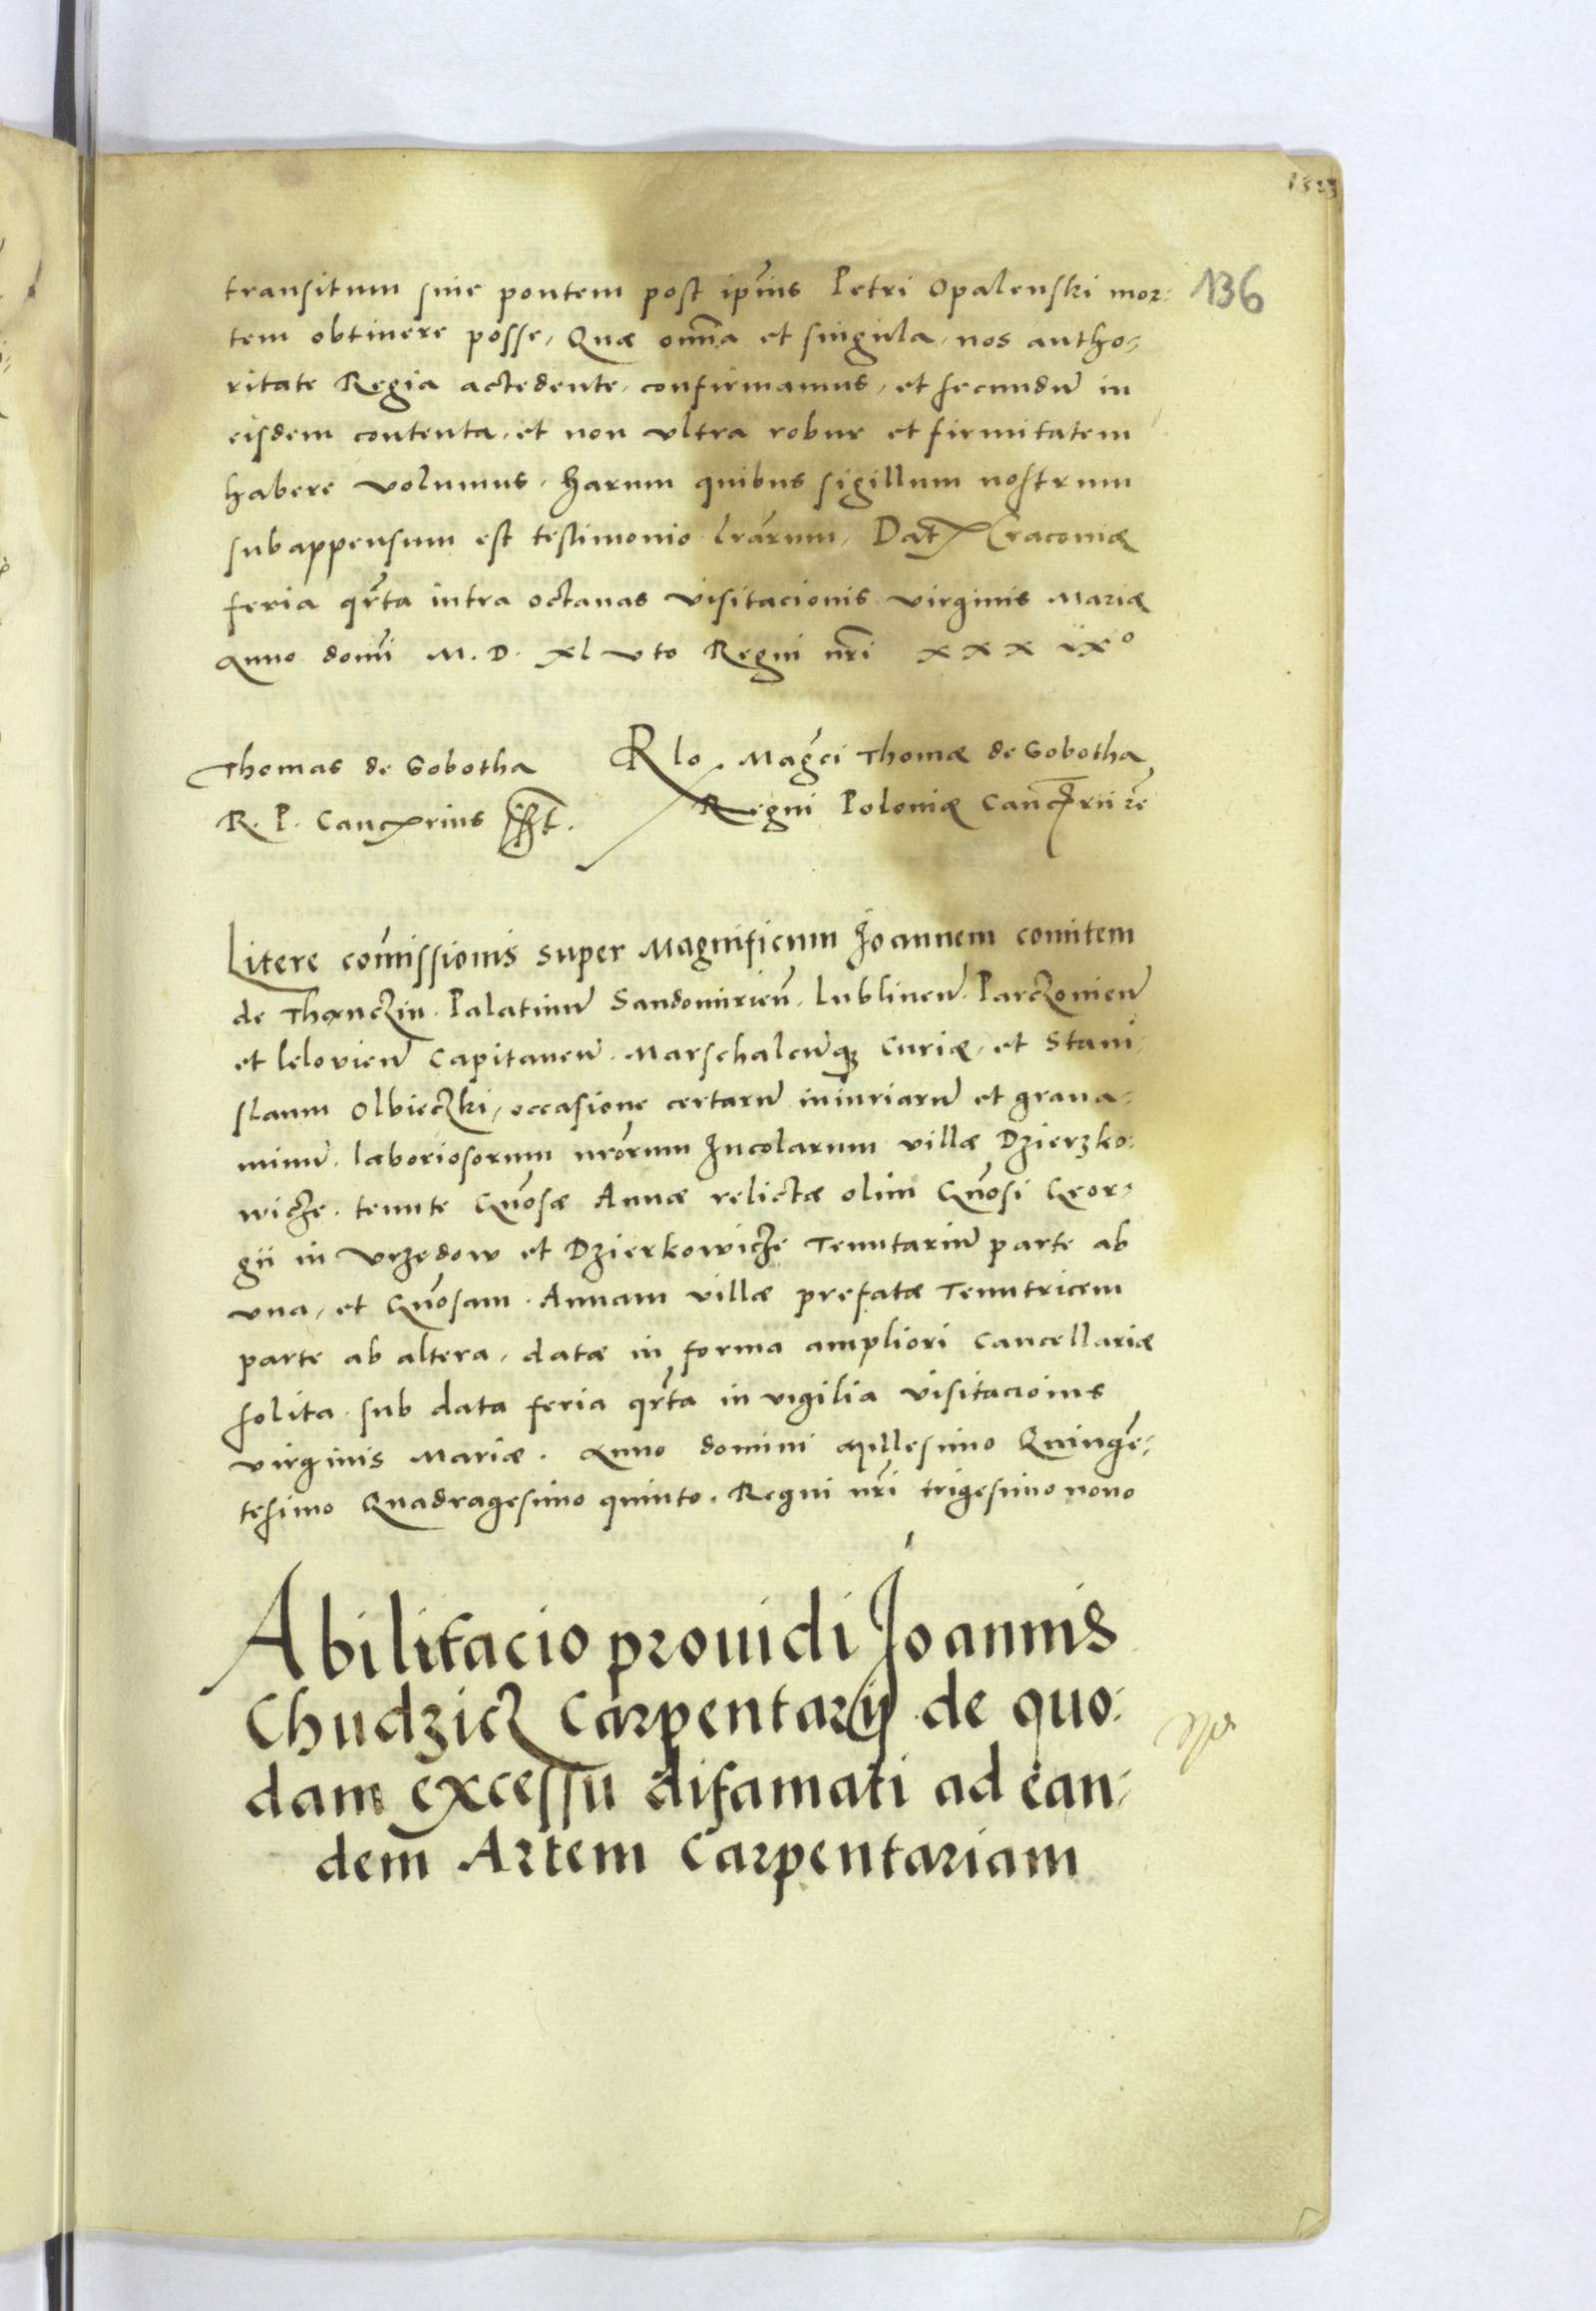 136
transitum sine pontem post ip̄ius Petri Opalenski mor⸗
tem obtinere posse, Quæ om̄ia et singula, nos autho⸗
ritate Regia accedente, confirmamus, et secundū in
eisdem contenta, et non vltra robur et firmitatem
habere volumus, harum quibus sigillum nostrum
subappensum est testimonio l̄rarum, Dat Cracoviæ
feria qr̄ta intra octauas visitacionis virginis Mariæ
Anno domī M. D. xl vto Regni nr̄i xxx ix°
Thomas de Sobotha
R. P. Cancrius sst.
Rlo. Magc̄i Thomæ de Sobotha
Regni Poloniæ Cancrii rē
Litere com̄issionis super Magnificum Joannem comitem
de Thanczin. Palatinū Sandomirien̄. Lublinen̄. Parczovien̄
et lelovien̄ Capitaneū. Marschalcūq₃ Curiæ, et Stani⸗
slaum Olbieczki, occasione certarū iniuriarū et graua⸗
minū. laboriosorum nr̄orum Incolarum villæ Dzierzko⸗
wicze. tenute Gn̄osæ Annæ relictæ olim Gn̄osi Geor⸗
gii in Vrzedow et Dzierkowicze Tenutariū parte ab
vna, et Gn̄osam. Annam villæ prefatæ Tenutricem
parte ab altera, datæ in forma ampliori Cancellariæ
solita. sub data feria qr̄ta in vigilia visitacionis
virginis Mariæ. Anno domini Millesimo Quingē⸗
tesimo Quadragesimo quinto. Regni nr̄i trigesimo nono
Abilitacio prouidi Joannis
Chudzicz Carpentarij de quo⸗
dam excessu difamati ad ean⸗
dem Artem Carpentariam